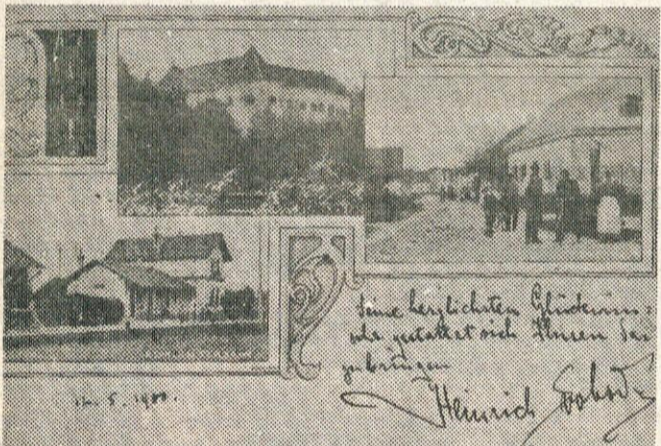 Seine herzlichsten Glückwün-
sche gestattet sich Ihnen dar
zubringen
Heinrich Svoboda
5. 1900.